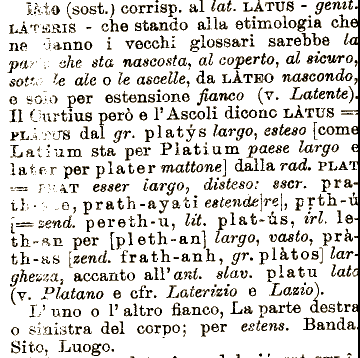 lato (sost.) corrisp. al lat. LÀTUS - genit.
LÀTERIS - che stando alla etimologia che
ne danno i vecchi glossari sarebbe la
parte che sta nascosta, al coperto, al sicuro,
sotto le ale o le ascelle, da LÀTEO nascondo,
e solo per estensione fianco (v. Latente).
Il Curtius però e l'Ascoli dicono LÀTUS =
PLÀTUS dal gr. platýs largo, esteso [come
Latium sta per Platium paese largo e
later per plater mattone] dalla rad. PLAT
= PRAT esser largo, disteso: scr. pra-
prath-ayati estende[re], pṛth-ú
[= zend. pereth-u, lit. plat-ús, irl. le-
th-an per [pleth-an] largo, vasto, prà-
th-as [zend. frath-anh, gr. plàtos] lar-
ghezza, accanto all'ant. slav. platu lato
(v. Platano e cfr. Laterizio e Lazio).
L'uno o l'altro fianco, La parte destra
o sinistra del corpo; per estens. Banda,
Sito, Luogo.